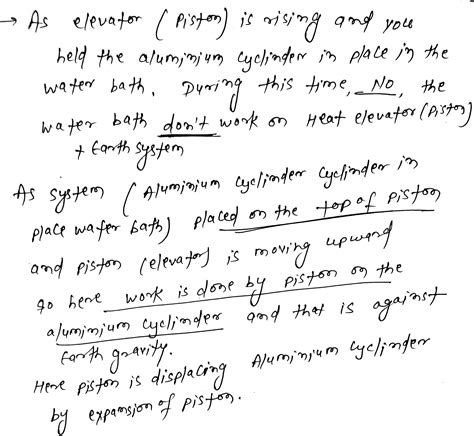 → As elevator (Piston) is rising and you
held the aluminium cyclinder in place in the
water bath. During this time, No, the
water bath don't work on Heat elevator (Piston)
+ Earth system
As system (Aluminium cyclinder cyclinder in
place wafer bath) placed on the top of piston
and piston (elevator) is moving upward
so here work is done by piston on the
aluminium cyclinder and that is against
Earth gravity.
Here piston is displacing Aluminium cyclinder
by expansion of piston.